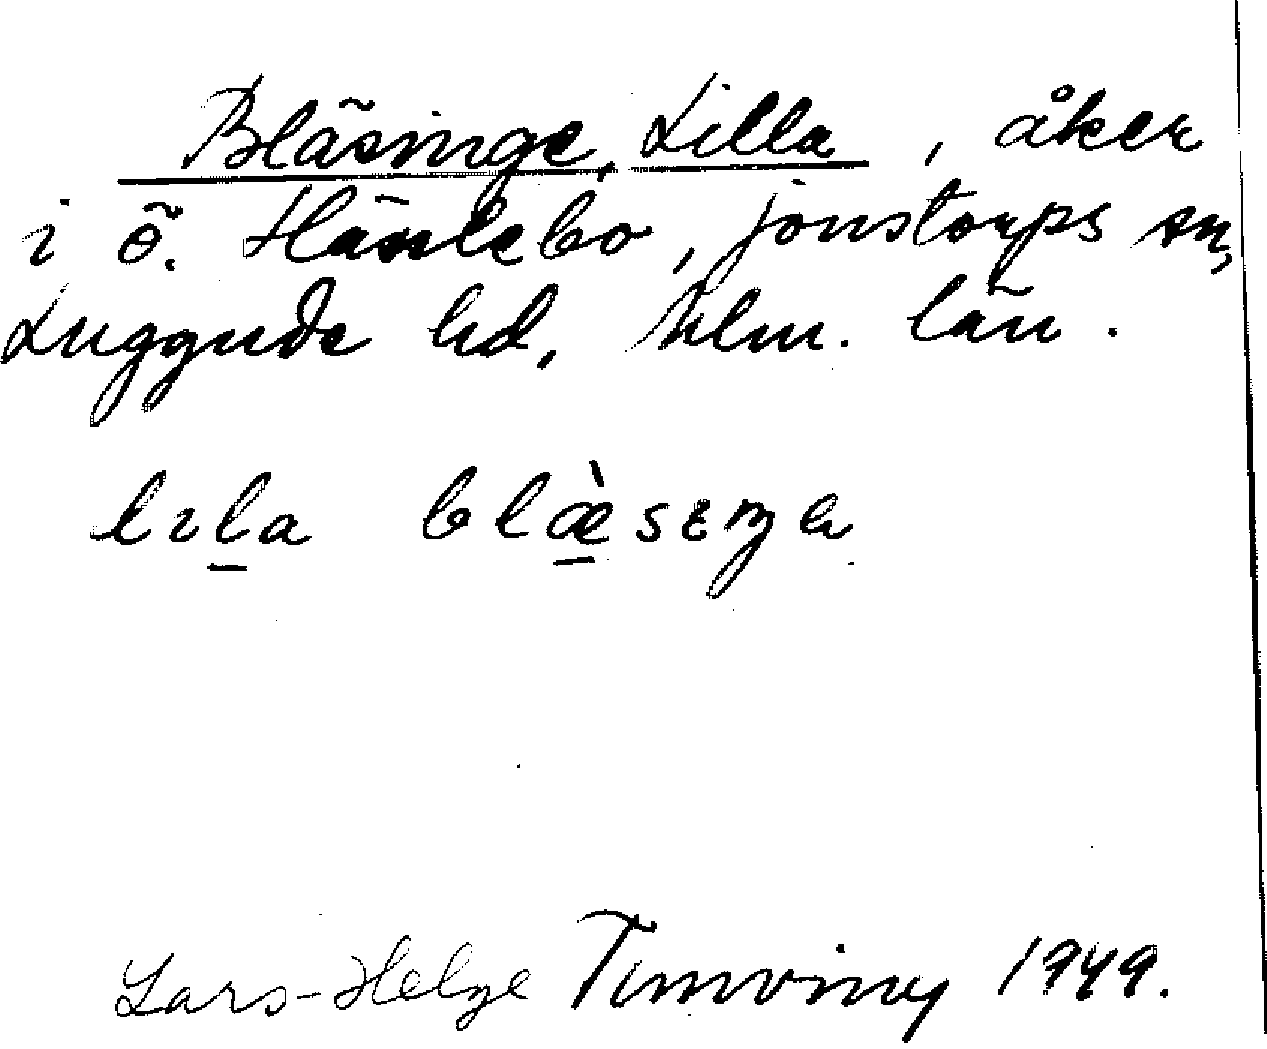 Bläsinge, Lilla, åker
i ö. Hässlebo, jonstorps sn,
Luggude hd, Mlm. län.
lıla blæ̀sıŋa
Lars-Helge 1949.